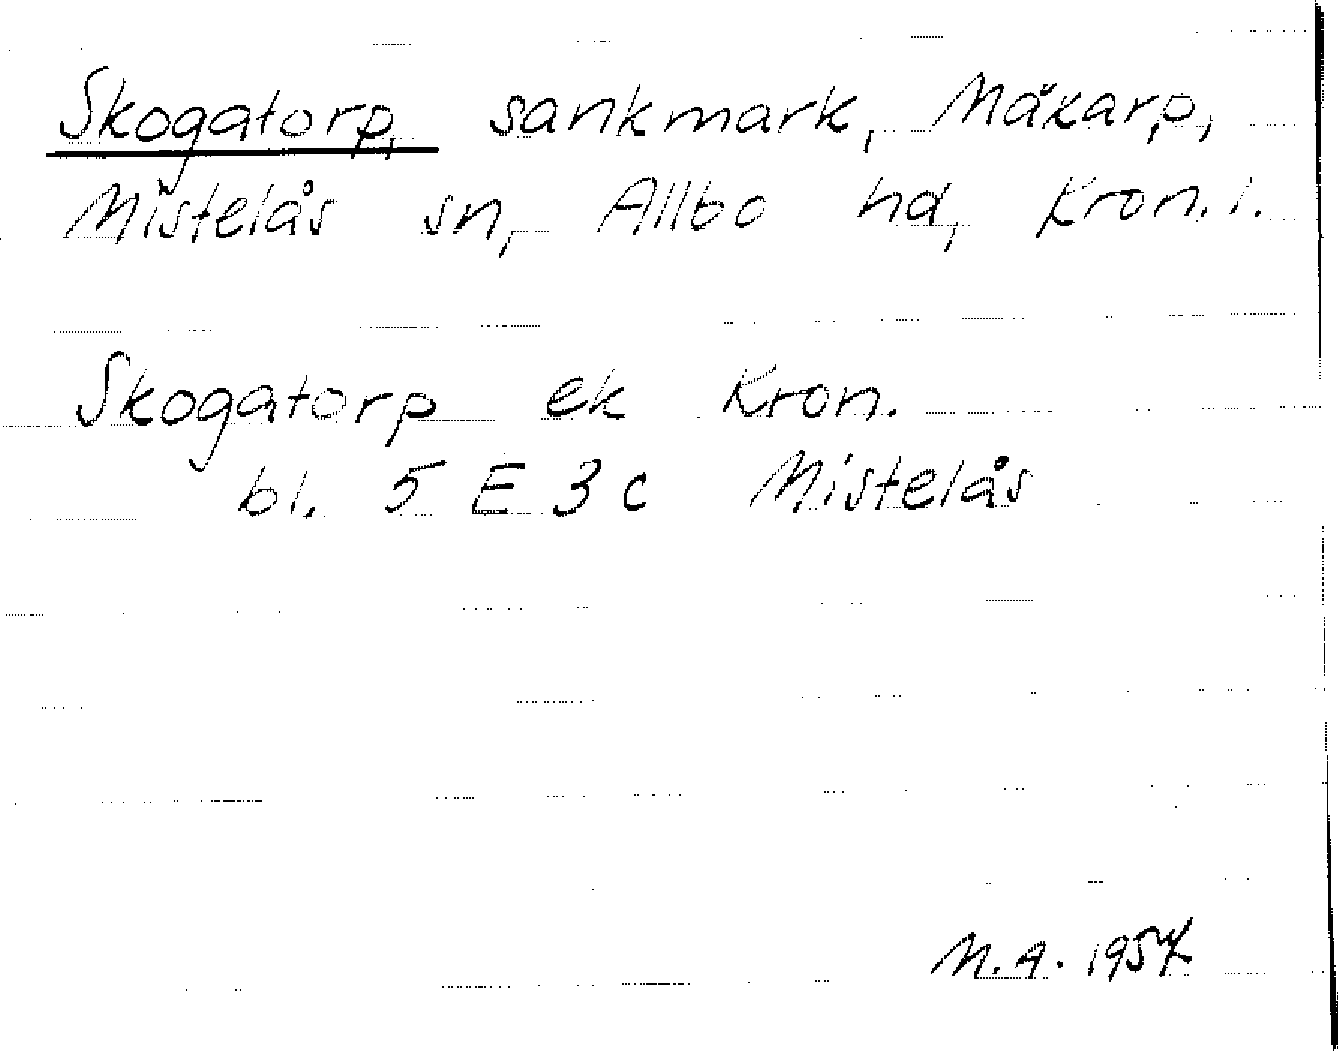 Skogatorp, sankmark, Måkarp,
Mistelås sn, Allbo hd, Kron. l.
Skogatorp ek Kron.
bl. 5 E 3 c Mistelås
M.A. 1957